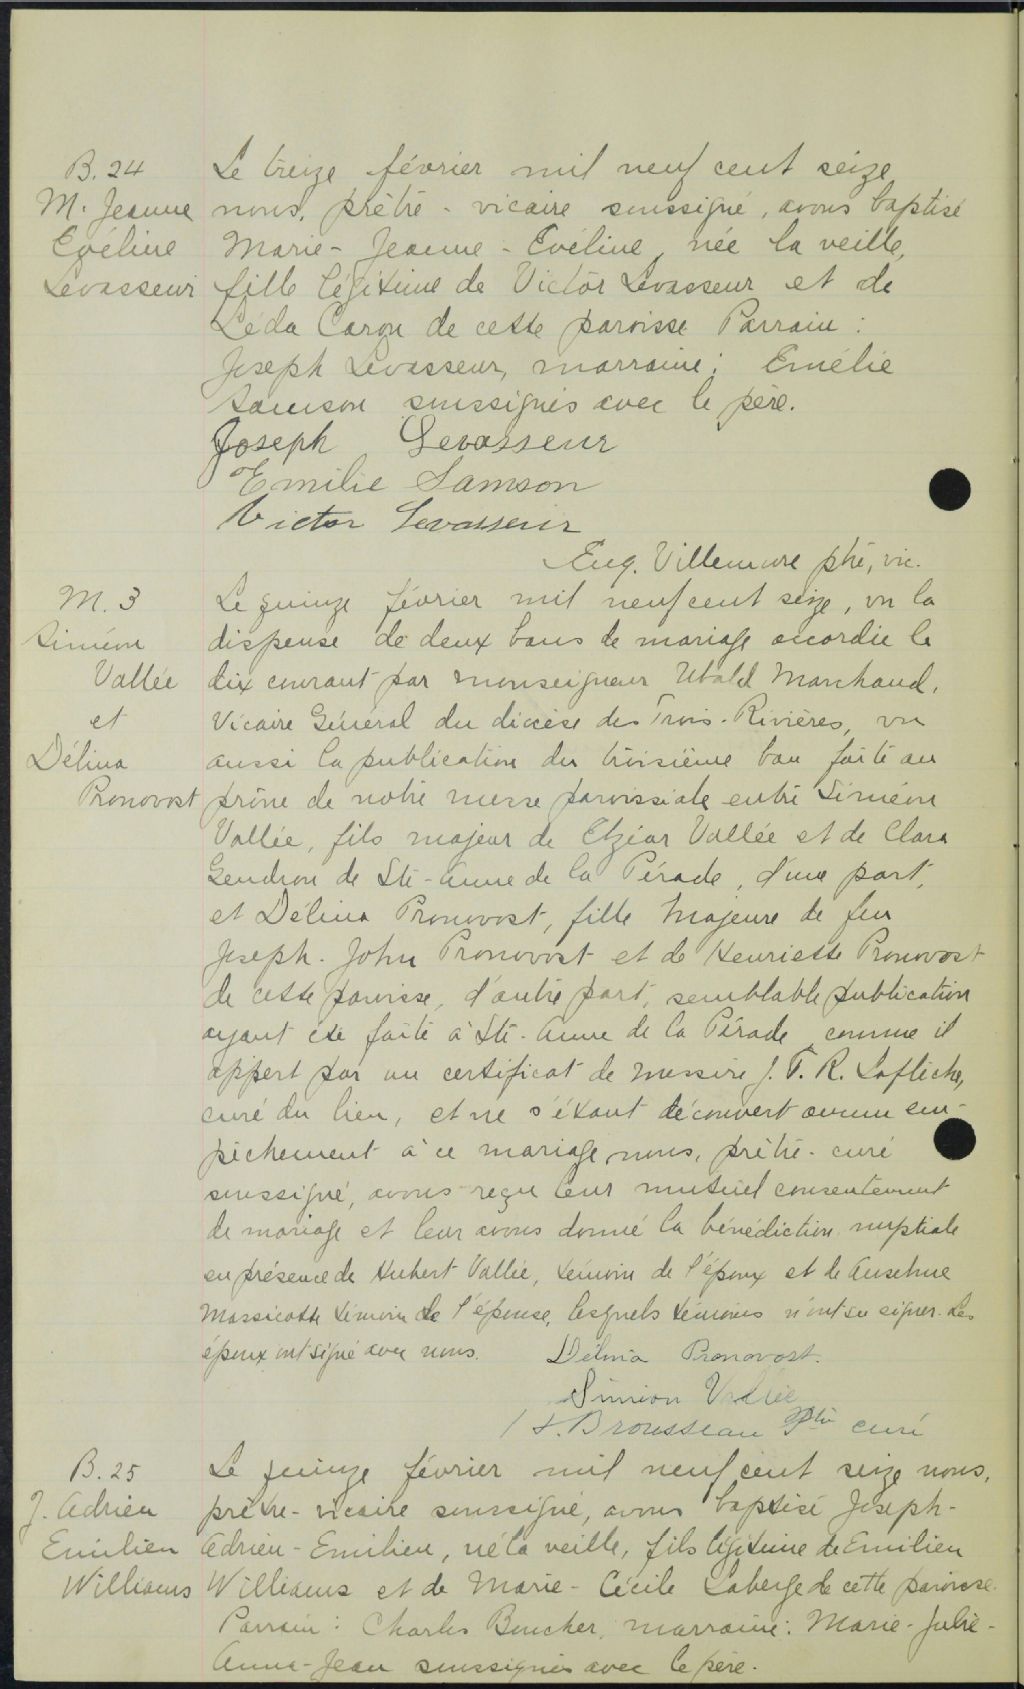 B. 24
M. Jeanne
Evéline
Levasseur
Le treize février mil neuf cent seize
nous, prêtre - vicaire soussigné, avons baptisé
Marie - Jeanne - Evéline, née la veille,
fille légitime de Victor Levasseur et de
Léda Caron de cette paroisse Parrain :
Joseph Levasseur, marraine : Emélie
Samson soussignés avec le père.
Joseph Levasseur
Emilie Samson
Victor Levasseur
Eug. Villemure ptre, vic.
M. 3
Siméon
Vallée
et
Délina
Pronovost
Le quinze février mil neuf cent seize, vu la
dispense de deux bans de mariage accordée le
dix courant par monseigneur Ubald Marchand,
Vicaire Général du diocèse des Trois-Rivières, vu
aussi la publication du troisième ban faite au
prône de notre messe paroissiale entre Siméon
Vallée, fils majeur de Elzéar Vallée et de Clara
Gendron de Ste-Anne de la Pérade, d'une part,
et Délina Pronovost, fille majeure de feu
Joseph - John Pronovost et de Henriette Pronovost
de cette paroisse, d'autre part, semblable publication
ayant été faite à Ste-Anne de la Pérade comme il
appert par un certificat de messire J. T. R. Laflèche,
curé du lieu, et ne s'étant découvert aucun em-
pêchement à ce mariage, nous, prêtre - curé
soussigné, avons reçu leur mutuel consentement
de mariage et leur avons donné la bénédiction nuptiale
en présence de Hubert Vallée, témoin de l'époux et de Anselme
Massicotte témoin de l'épouse, lesquels témoins n'ont su signer. Les
époux ont signé avec nous. Délina Pronovost.
Siméon Vallée
Brousseau Ptre curé
B. 25
J. Adrien
Emilien
Williams
Le quinze février mil neuf cent seize nous,
prêtre - vicaire soussigné, avons baptisé Joseph -
Adrien - Emilien, né la veille, fils légitime de Emilien
Williams et de Marie - Cécile Laberge de cette paroisse.
Parrain : Charles Boucher, marraine : Marie - Julie -
Anna - Jean soussignés avec le père.